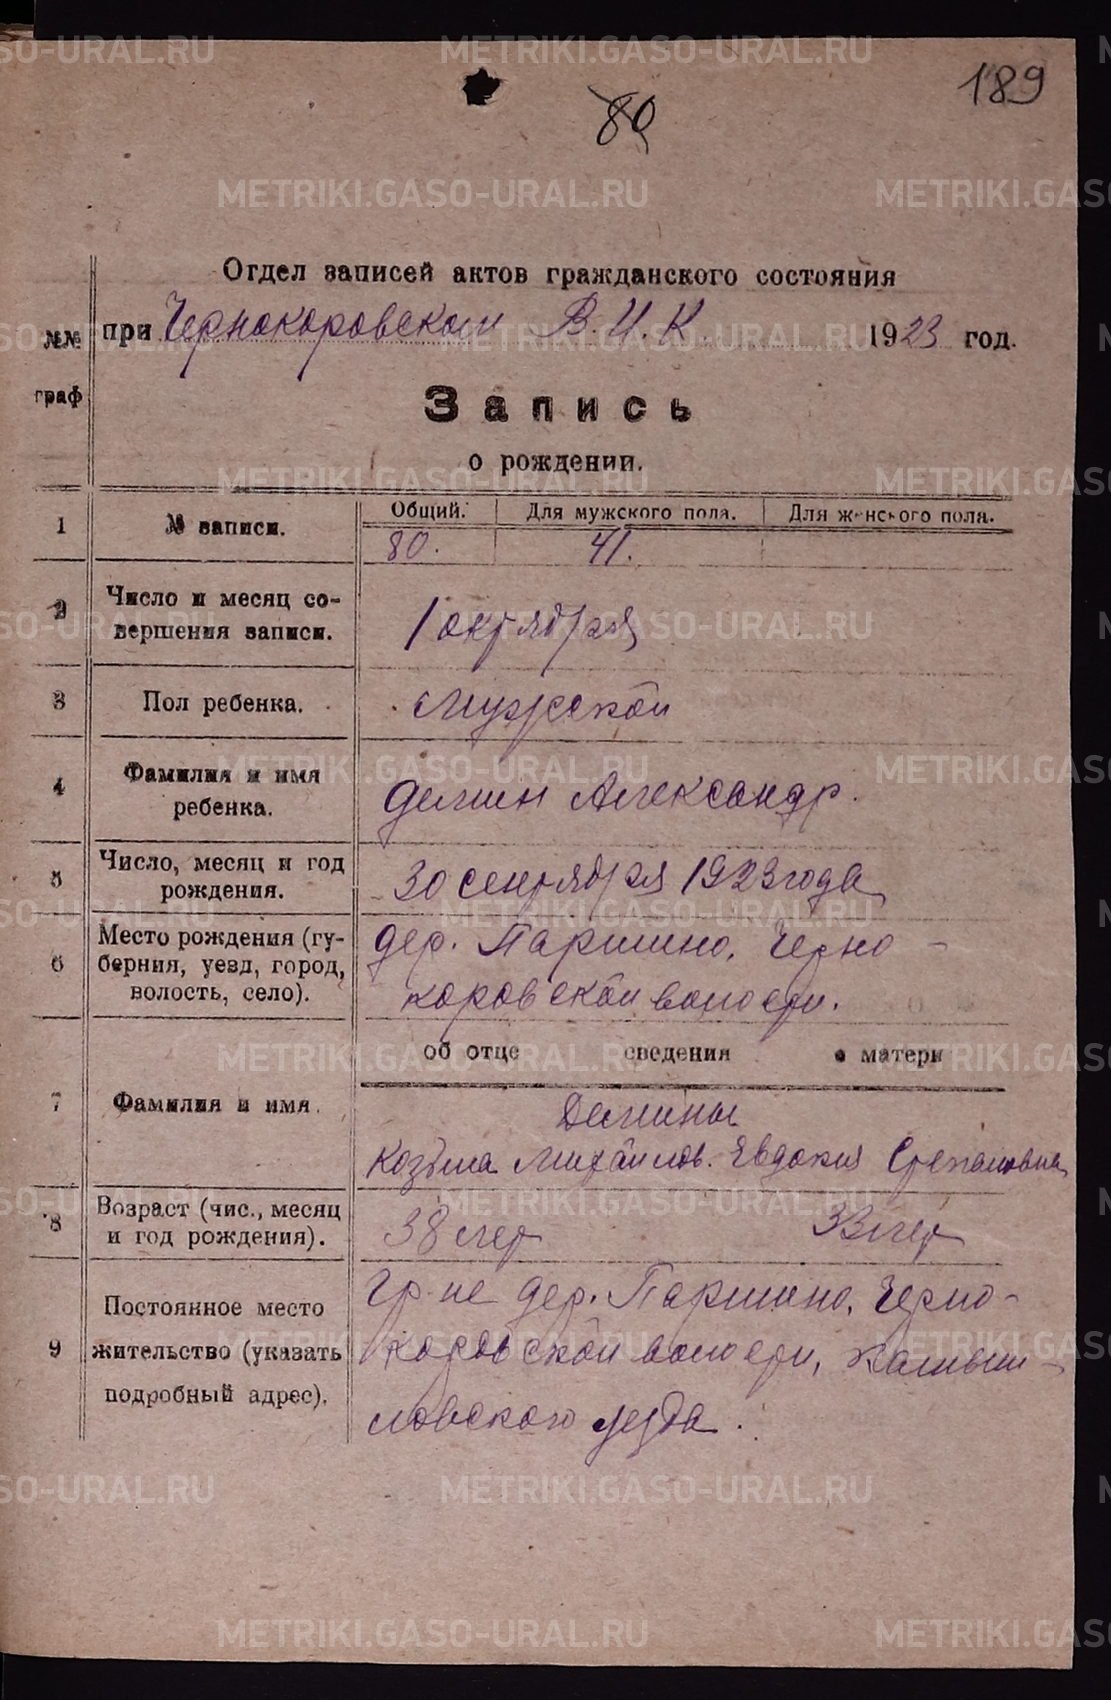 189
80
Отдел записей актов гражданского состояния
при Чернокоровском В.И.К. 1923 год.
№№ граф
Запись
о рождении.
1 № записи. Общий. Для мужского пола. Для женского пола.
80. 41.
2 Число и месяц со-
вершения записи.
1 октября
3 Пол ребенка. мужской
4 Фамилия и имя
ребенка.
Демин Александр.
5 Число, месяц и год
рождения.
30 сентября 1923 года
6 Место рождения (гу-
берния, уезд, город,
волость, село).
дер. Паршино, Черно-
коровской волости.
об отце сведения о матери
7 Фамилия и имя.
Демины
Козьма Михайлов. Евдокия Степановна
8 Возраст (чис., месяц
и год рождения).
38 лет 33 лет
9 Постоянное место
жительство (указать
подробный адрес).
Гр-не дер. Паршино, Черно-
коровской волости, Камыш-
ловского уезда.
METRIKI.GASO-URAL.RU